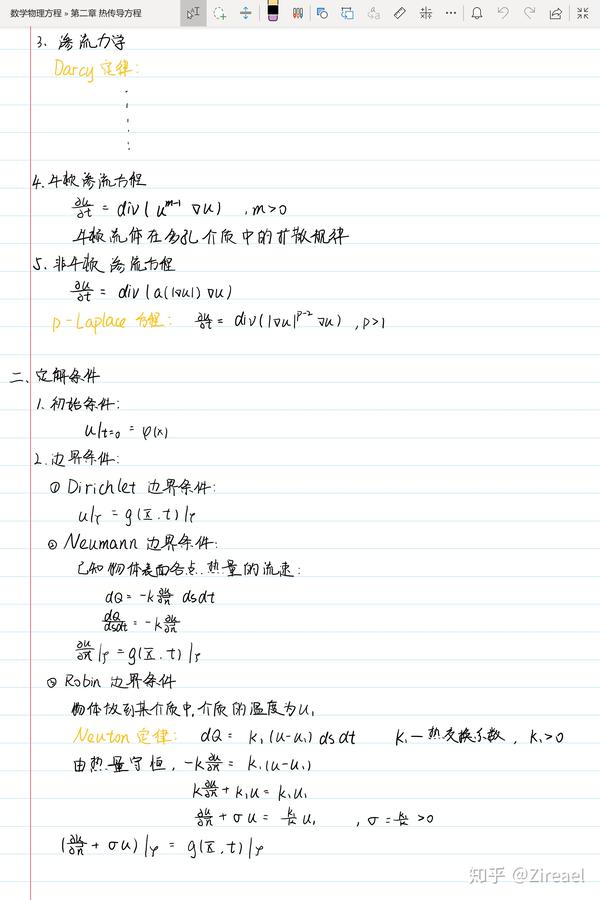 数学物理方程 » 第二章 热传导方程
3. 渗流力学
Darcy 定律:
4. 牛顿渗流方程
∂u/∂t = div(u^{m-1} ∇u) , m>0
牛顿流体在多孔介质中的扩散规律
5. 非牛顿渗流方程
∂u/∂t = div(a(|∇u|)∇u)
p-Laplace 方程: ∂u/∂t = div(|∇u|^{p-2} ∇u) , p>1
二、定解条件
1. 初始条件:
u|t=0 = φ(x)
2. 边界条件:
① Dirichlet 边界条件:
u|r = g(x,t)|r
② Neumann 边界条件:
已知物体表面各点热量的流速:
dQ = -k ∂u/∂n dsdt
dQ/dsdt = -k ∂u/∂n
∂u/∂n|r = g(x,t)|r
③ Robin 边界条件
物体放到某介质中,介质的温度为u₁
Neuton 定律: dQ = k₁(u-u₁)dsdt k₁—热交换系数, k₁>0
由热量守恒, -k ∂u/∂n = k₁(u-u₁)
k ∂u/∂n + k₁u = k₁u₁
∂u/∂n + σu = k₁/k u₁ , σ = k₁/k > 0
(∂u/∂n + σu)|r = g(x,t)|r
知乎 @Zireael